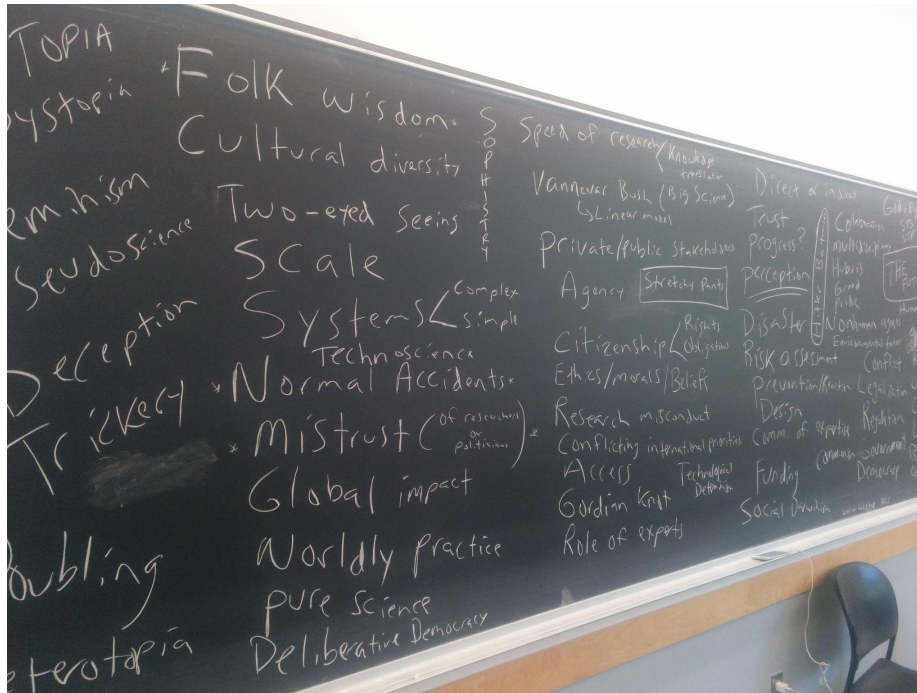 TOPIA
ystopia
eminism
seudoscience
Deception
Trickery
oubling
eterotopia
*Folk wisdom*
Cultural diversity
Two-eyed seeing
Scale
Systems < complex
simple
Technoscience
*Normal Accidents*
*Mistrust (of researchers or politicians)*
Global impact
Worldly practice
pure science
Deliberative Democracy
SOPHISTRY
Speed of research/Knowledge translation
Vannevar Bush (Big Science)
↳Linear model
Private/public stakeholders
Agency Stretchy Pants
Citizenship < Rights
Obligations
Ethics/morals/Beliefs
Research misconduct
Conflicting international priorities
Access
Technological
Gordian Knot
Role of experts
Direct or
Trust
progress?
perception
Disaster
Risk assessment
Prevention/
Design
Comm. of expertise
Funding
Social Darwinism
Collaboration
Hubris
Greed
Pride
Nonhuman agents
Environmental
Conflict
Legalization
Regulation
Government
Democracy
THE